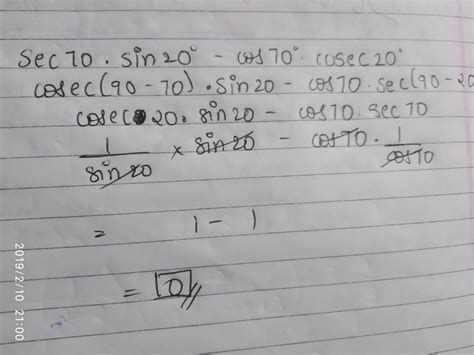 sec 70 . sin 20° - cos 70° . cosec 20°
cosec(90 - 70) . sin 20 - cos 70 . sec(90 - 20
cosec 20 . sin 20 - cos 70 . sec 70
1/sin 20 × sin 20 - cos 70 . 1/cos 70
= 1 - 1
= 0
2019/2/10 21:00